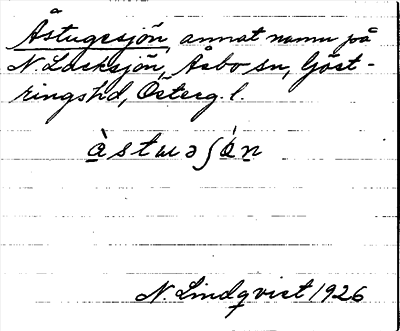 Åstugesjön, annat namn på
N. Lacksjön, Åsbo sn, Göst-
ringshd, Österg. l.
àstɯəʃón
N. Lindqvist 1926